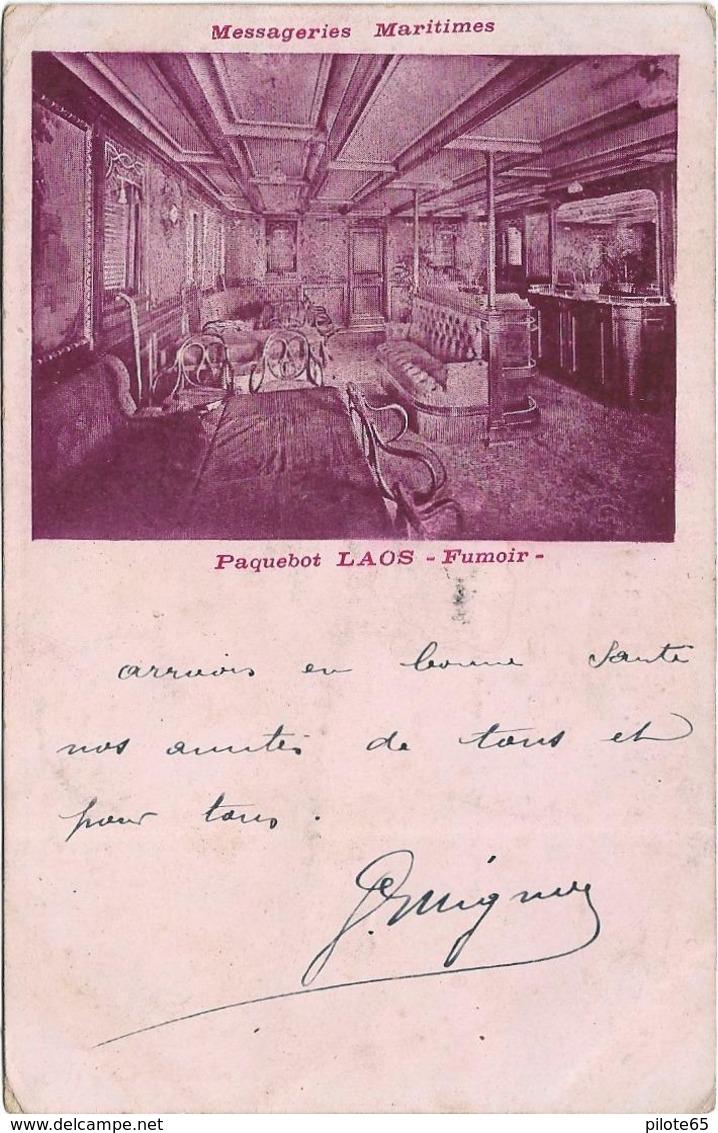 Messageries Maritimes
Paquebot LAOS - Fumoir -
arrivons en bonne Santé
nos amitiés de tous et
pour tous.
delcampe.net
pilote65